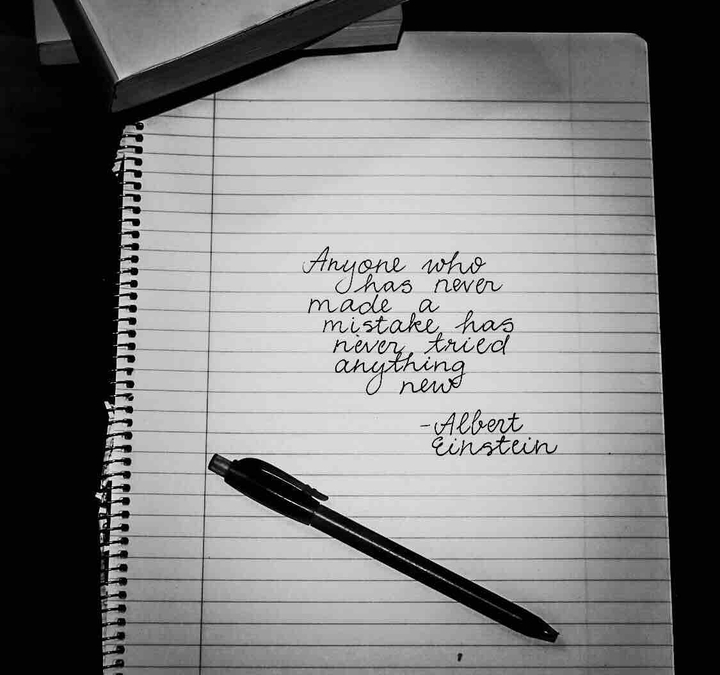 Anyone who
has never
made a
mistake has
never tried
anything
new
-Albert
Einstein